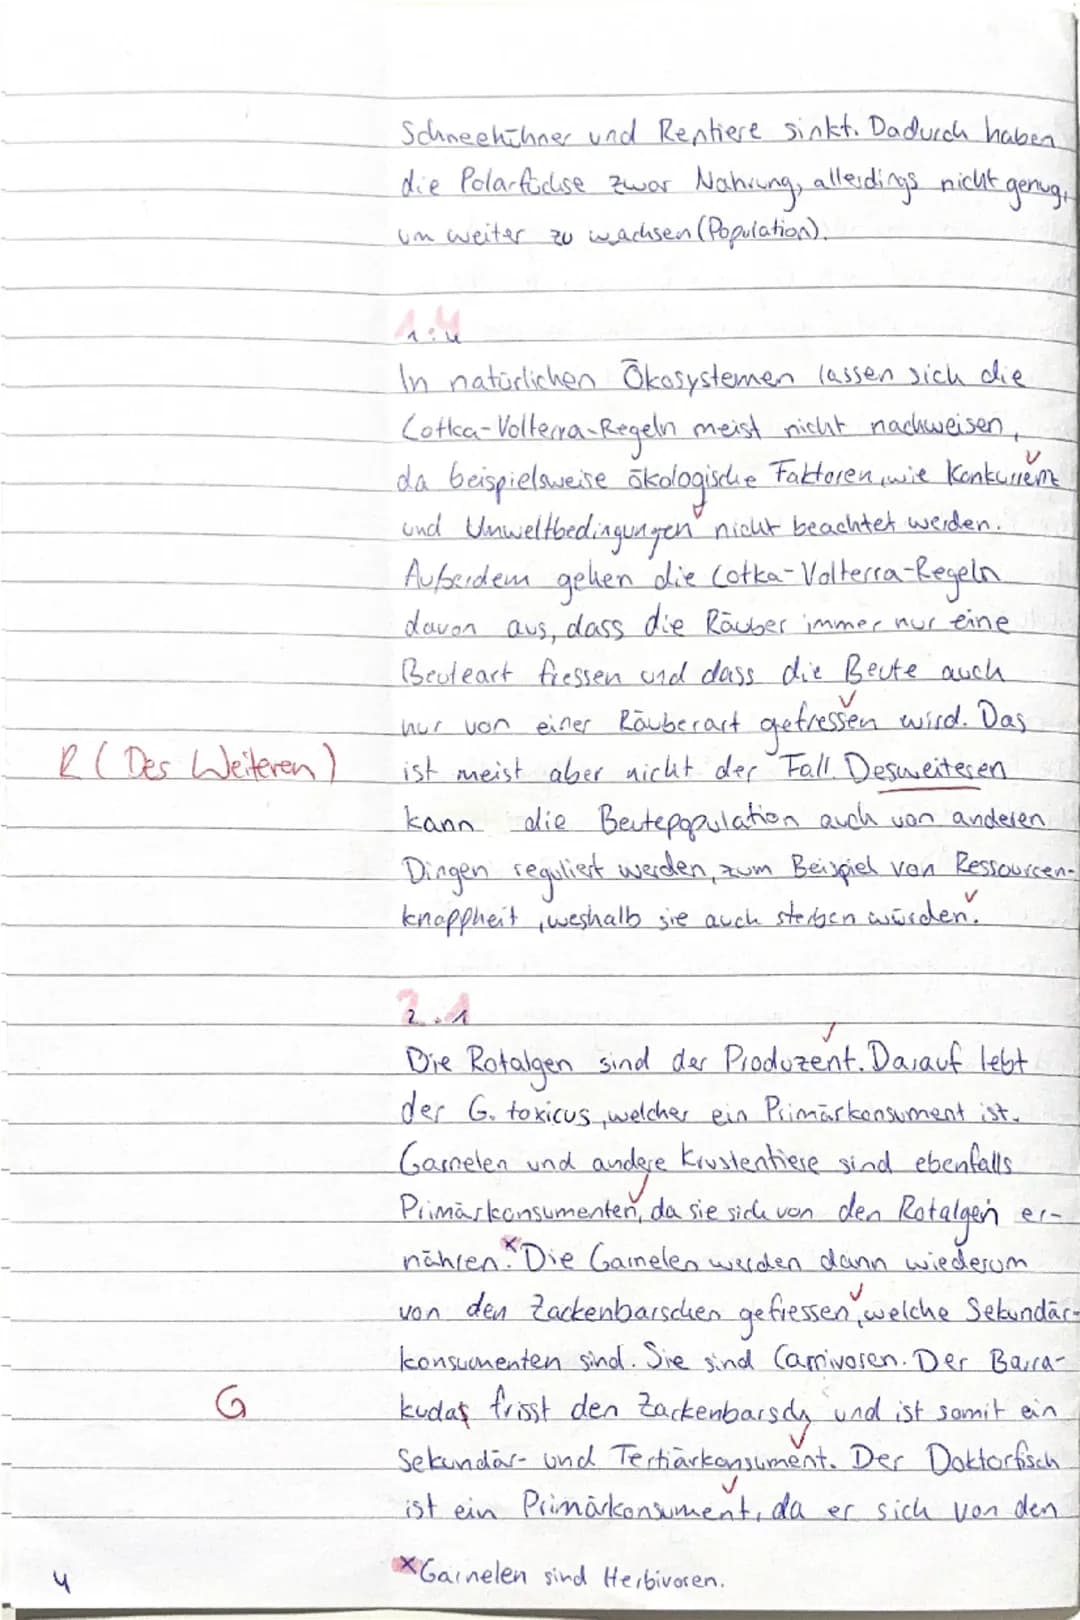 Schneehühner und Rentiere sinkt. Dadurch haben
die Polarfüchse zwar Nahrung, allerdings nicht genug,
um weiter zu wachsen (Population).
1.4
In natürlichen Ökosystemen lassen sich die
Lotka-Volterra-Regeln meist nicht nachweisen,
da beispielsweise ökologische Faktoren, wie Konkurrenz
und Umweltbedingungen nicht beachtet werden.
Außerdem gehen die Lotka-Volterra-Regeln
davon aus, dass die Räuber immer nur eine
Beuteart fressen und dass die Beute auch
nur von einer Räuberart gefressen wird. Das
R (Des Weiteren) ist meist aber nicht der Fall. Desweiteren
kann die Beutepopulation auch von anderen
Dingen reguliert werden, zum Beispiel von Ressourcen-
knappheit, weshalb sie auch sterben würden.
2.1
Die Rotalgen sind der Produzent. Darauf lebt
der G. toxicus, welcher ein Primärkonsument ist.
Garnelen und andere Krustentiere sind ebenfalls
Primärkonsumenten, da sie sich von den Rotalgen er-
nähren.* Die Garnelen werden dann wiederum
von den Zackenbarschen gefressen, welche Sekundär-
konsumenten sind. Sie sind Carnivoren. Der Barra-
G kudas frisst den Zackenbarsch und ist somit ein
Sekundär- und Tertiärkonsument. Der Doktorfisch
ist ein Primärkonsument, da er sich von den
*Garnelen sind Herbivoren.
4